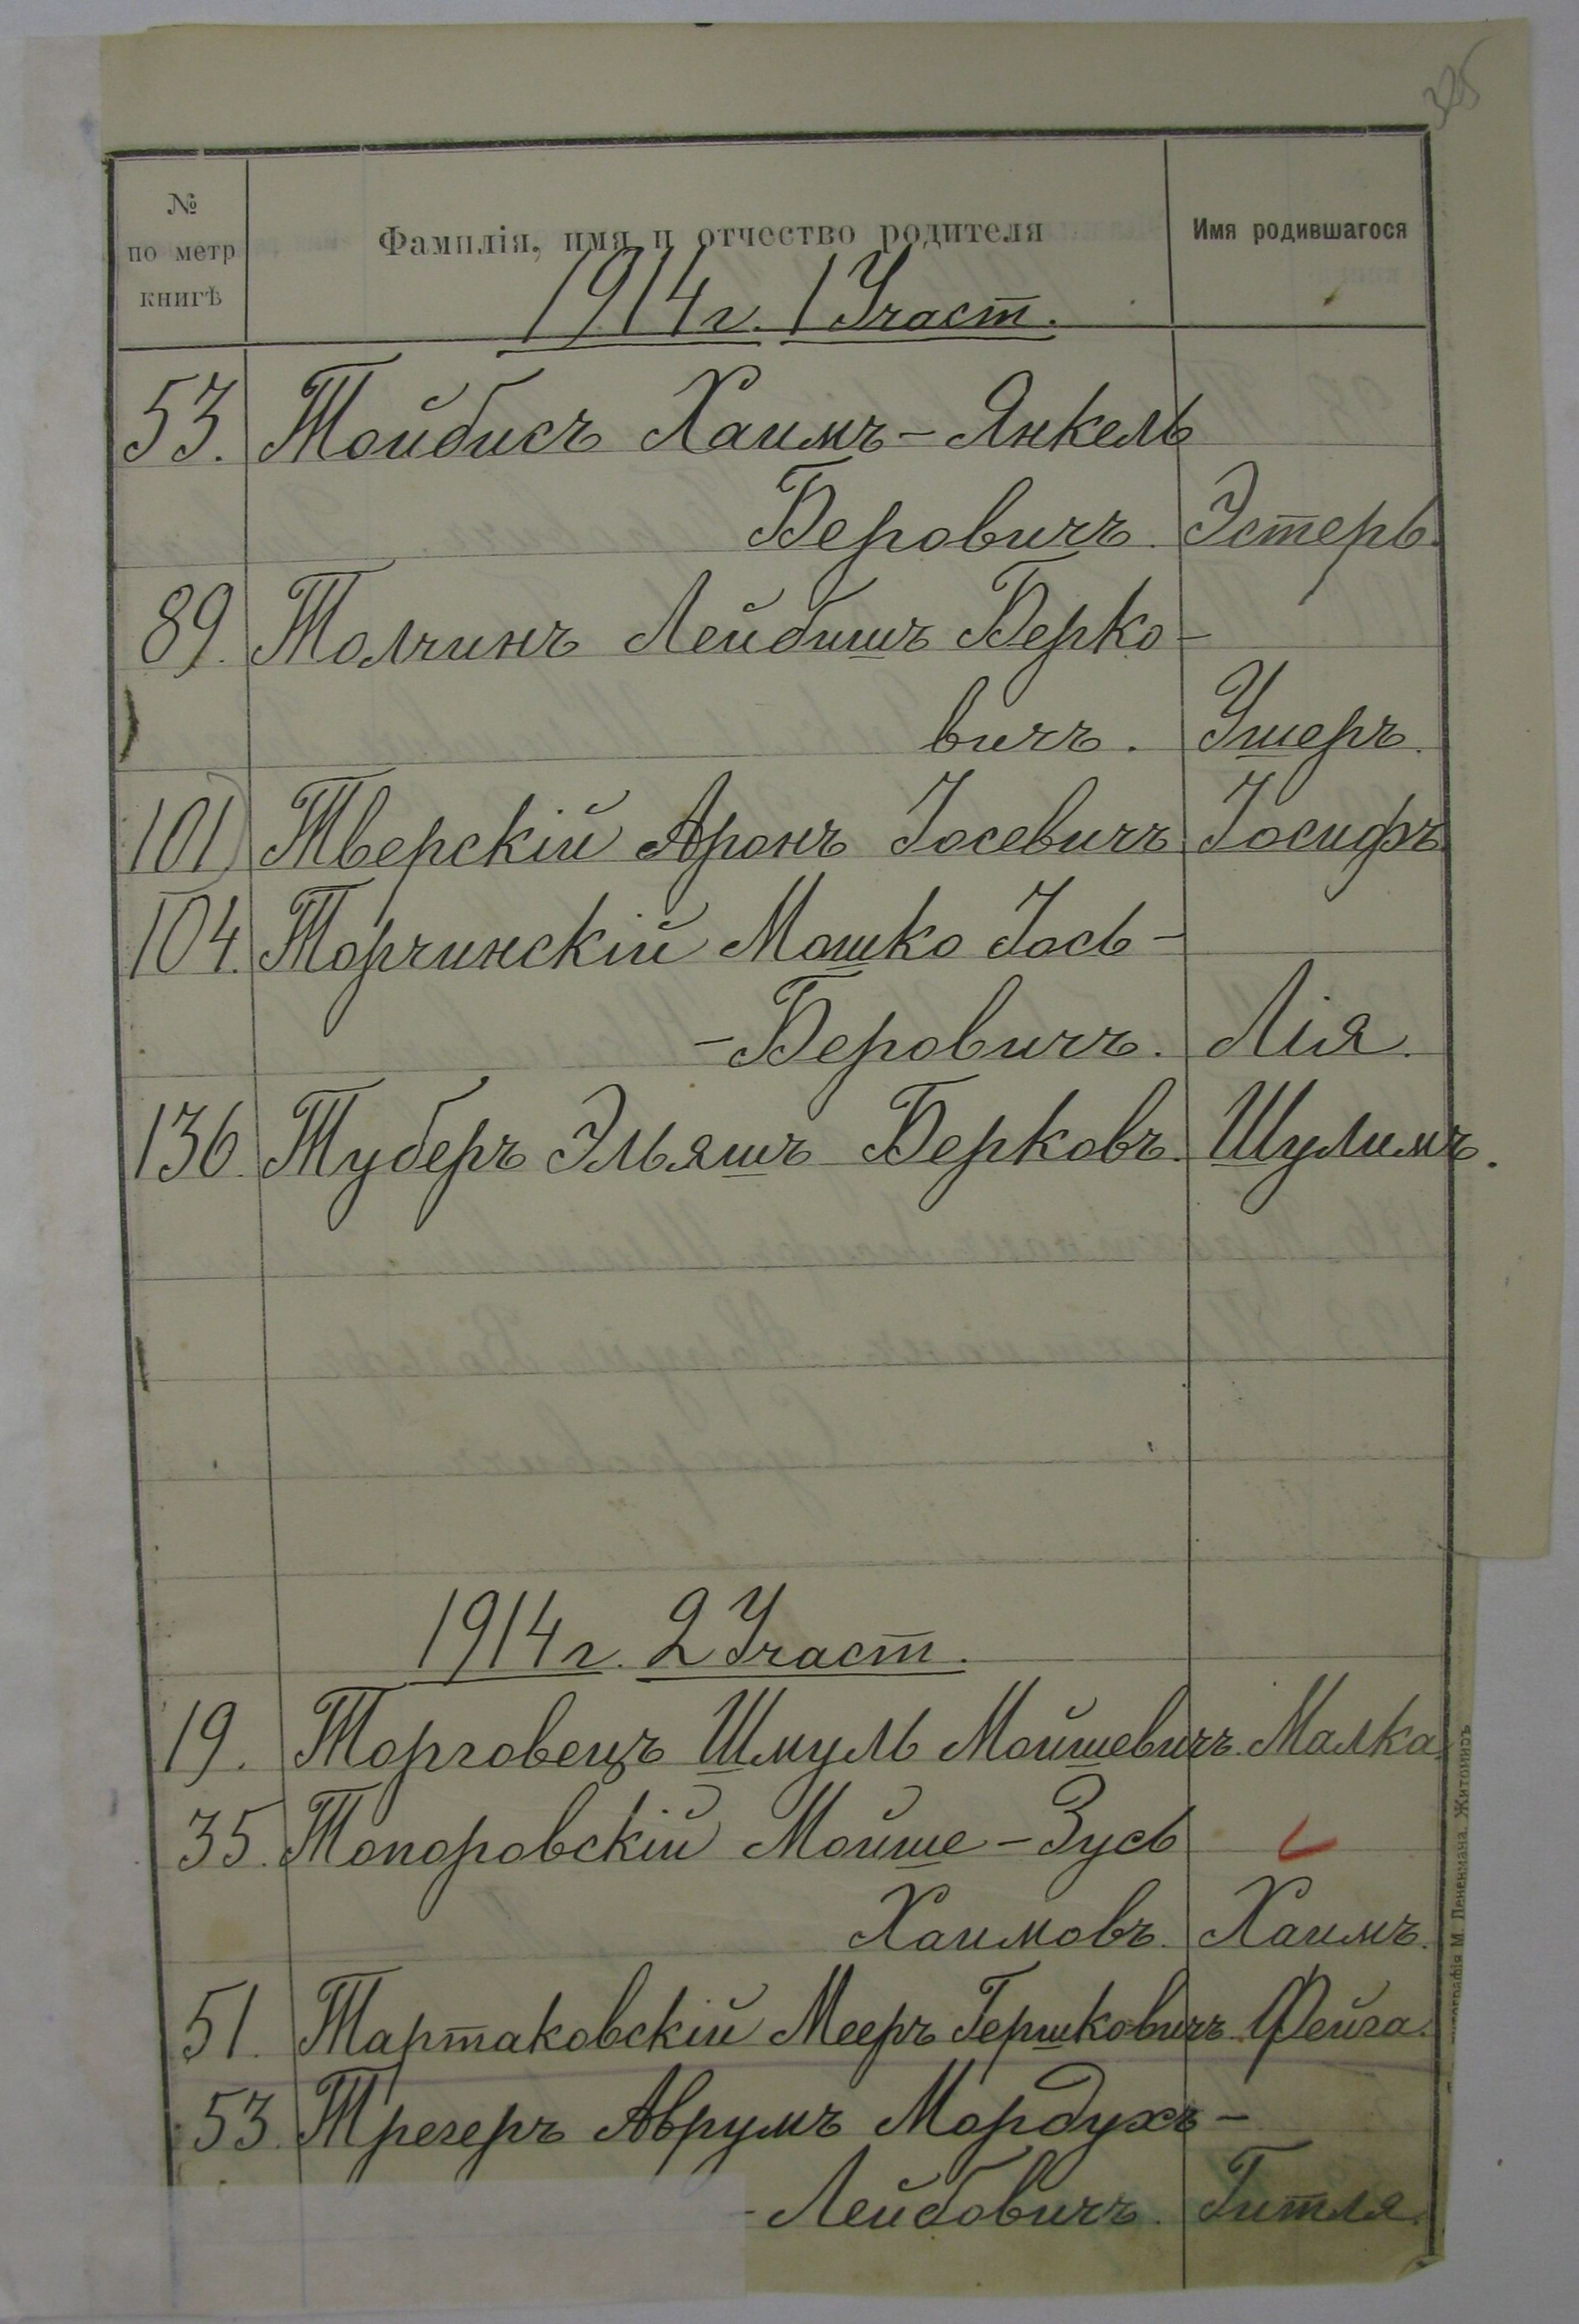 325
№
по метр
книгѣ
Фамилія, имя и отчество родителя
Имя родившагося
1914 г. 1 Участ.
53. Тойбисъ Хаимъ-Янкель
Беровичъ. Эстеръ.
89. Толчинъ Лейбишъ Берко-
вичъ. Ушеръ.
101) Тверскій Аронъ Іосевичъ Іосифъ
104. Торчинскій Мошко Іось-
-Беровичъ. Лія.
136. Туберъ Эльяшъ Берковъ. Шулимъ.
1914 г. 2 Участ.
19. Торговецъ Шмуль Мойшевичъ. Малка.
35. Топоровскій Мойше-Зусь
Хаимовъ. Хаимъ.
51. Тартаковскій Мееръ Гершковичъ Фейга.
53. Трегеръ Аврумъ Мордухъ-
-Лейбовичъ. Гитля.
М. Дененмана, Житомиръ